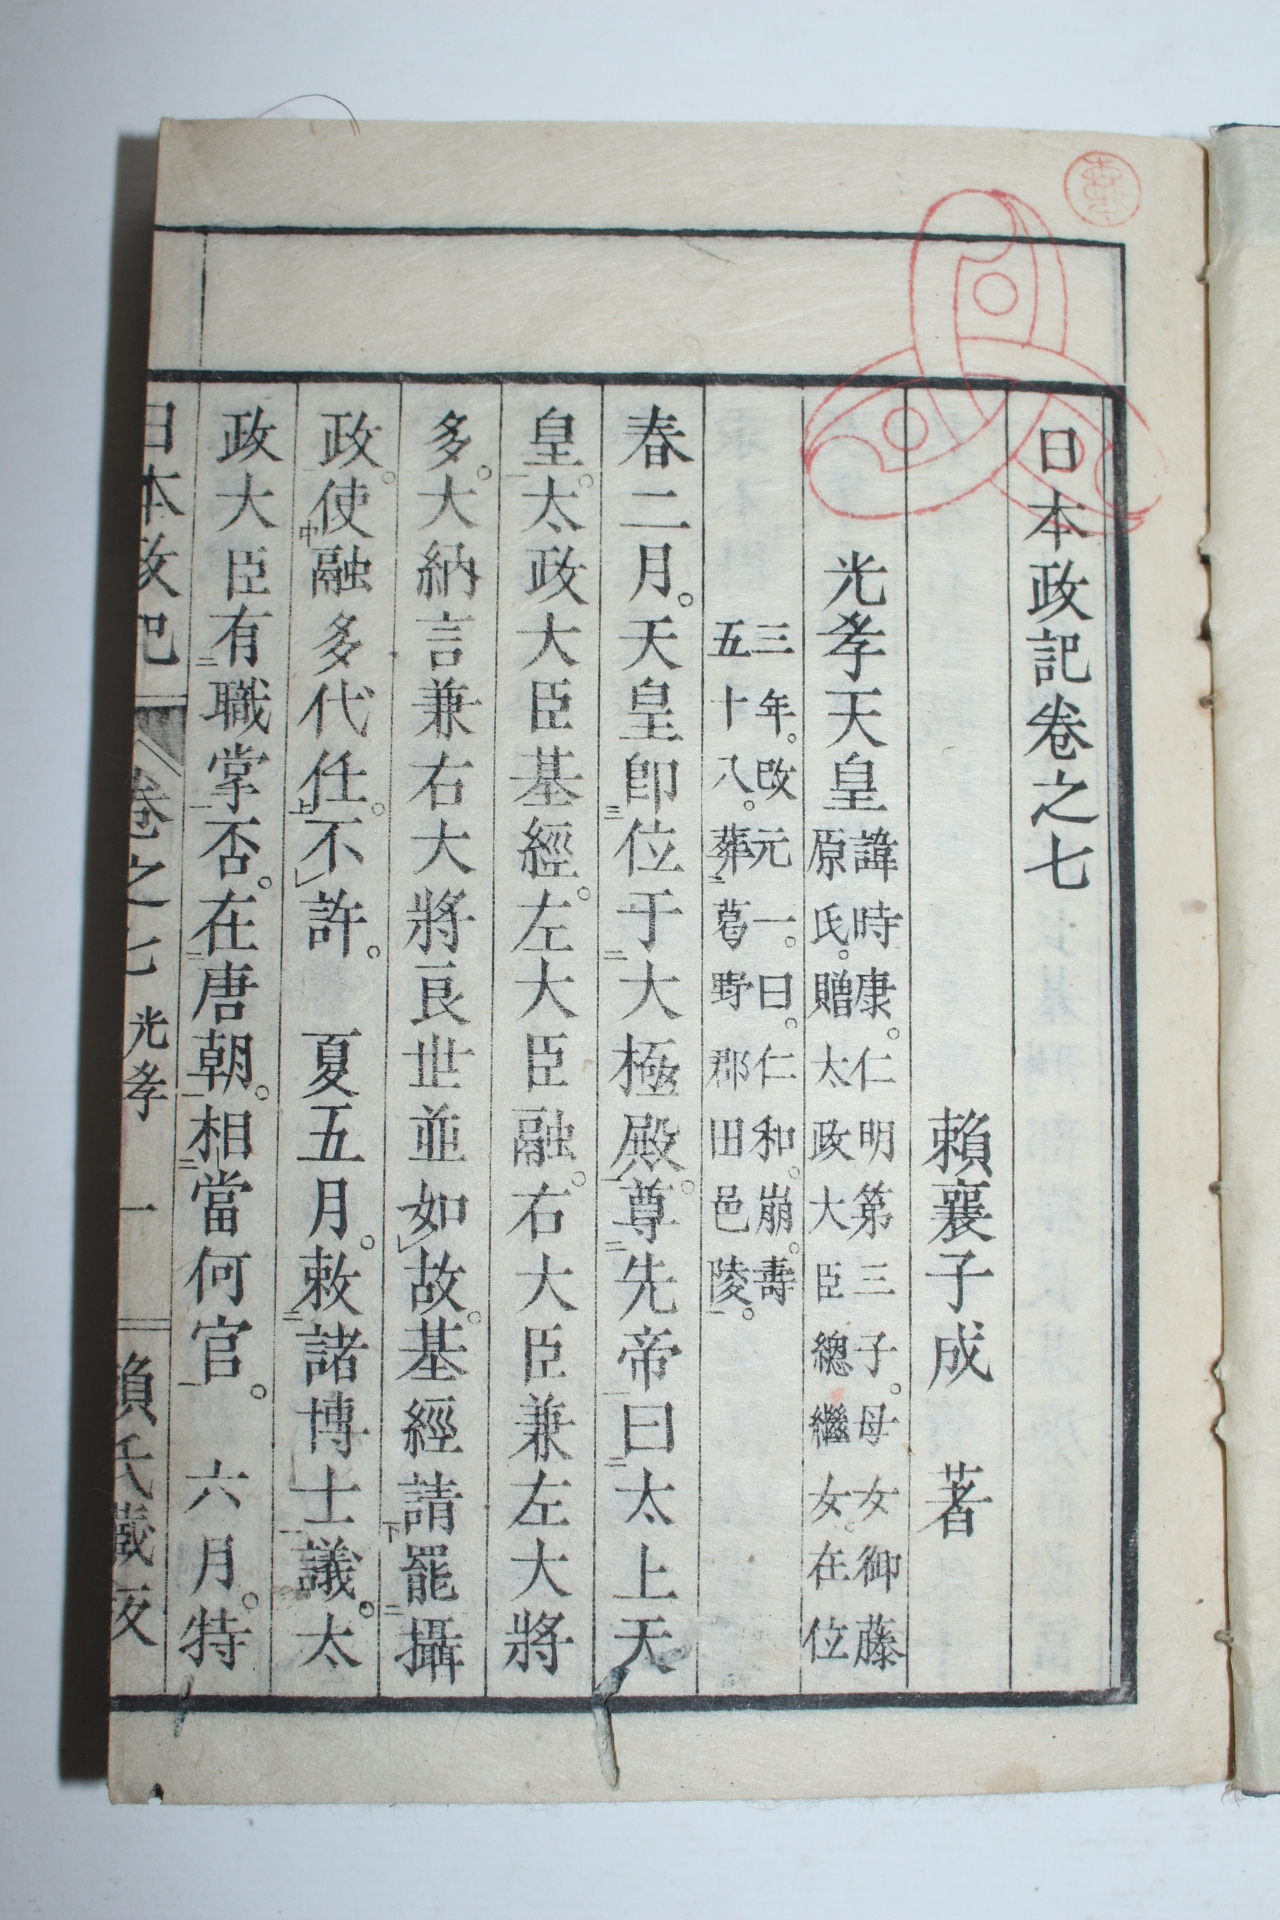 日本政記卷之七
賴襄子成 著
光孝天皇 諱時康。仁明第三子。母女御藤
原氏。贈太政大臣總繼女。在位
三年。改元一。曰。仁和。崩。壽
五十八。葬二葛野郡田邑陵一。
春二月。天皇卽三位于二大極殿一。尊二先帝一曰二太上天
皇一。太政大臣基經。左大臣融。右大臣兼左大將
多。大納言兼右大將良世並如故。基經請下罷二攝
政一。使中融多代任上。不許。 夏五月。敕二諸博士一議。太
政大臣有二職掌一否。在二唐朝一。相二當何官一。 六月。特
日本政記 卷之七 光孝 一 賴氏藏版